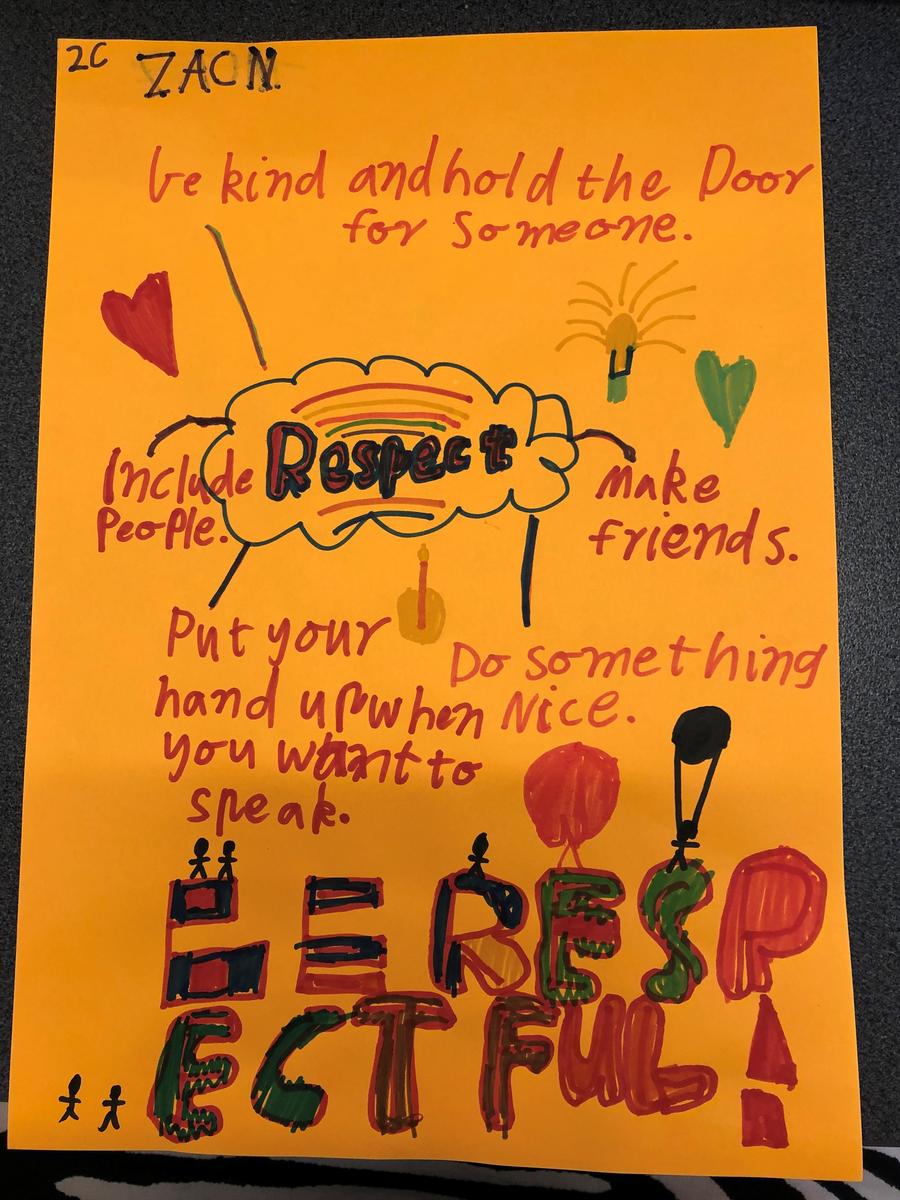 2C ZAC N.
be kind and hold the Door
for Someone.
Respect
Include
People.
Make
friends.
Put your
hand up when
you want to
speak.
Do something
Nice.
BE RESP
ECTFUL!